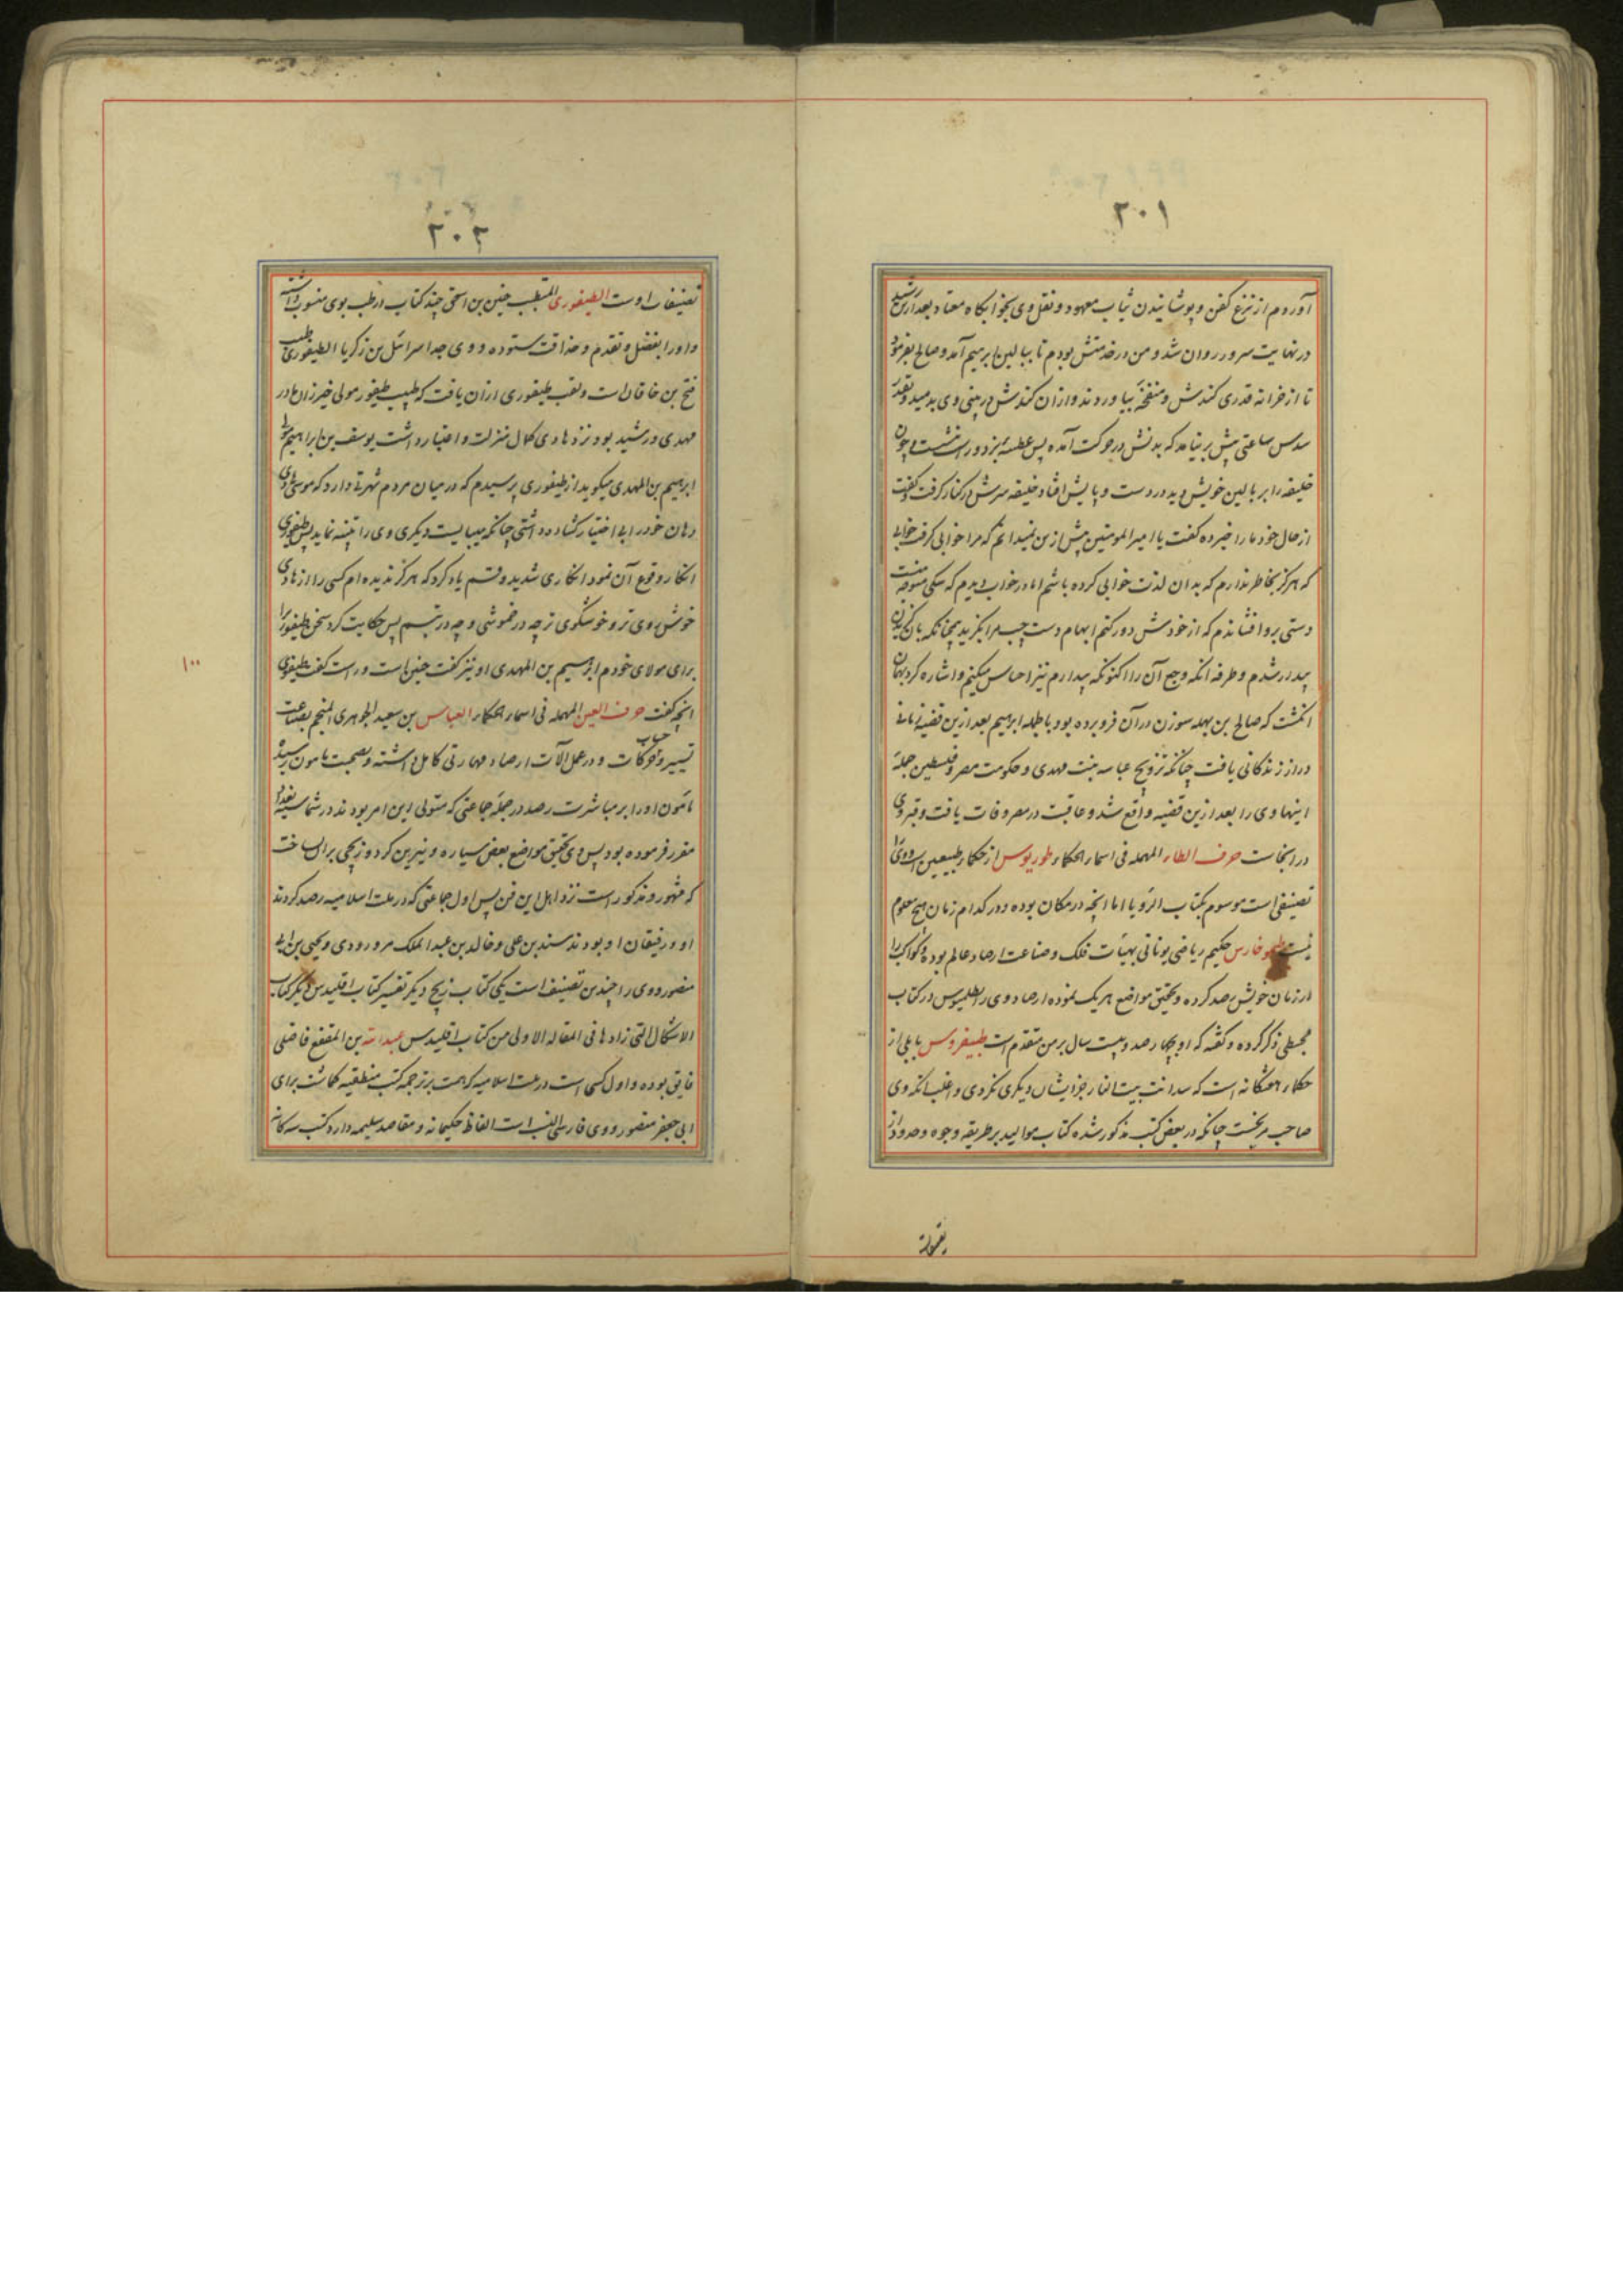 ۲۰۱
آوردم از نزع کفن و پوشانیدن ثیاب معهود و نقل وی بخوابگاه معتاد بعد ازان رشید
در نهایت سرور روان شد و من در خدمتش بودم تا ببالین ابرهیم آمد و صالح بفرمود
تا از خزانه قدری کندش و منفخه بیاوردند و ازان کندش در بینی وی بدمید و بقدر
سدس ساعتی بیش بر نیامد که بدنش در حرکت آمده پس عطسه بزد و راست بنشست و چون
خلیفه را بر بالین خویش دید در دست و پایش افتاد خلیفه سرش در کنار گرفت و گفت
از حال خود ما را خبر ده گفت یا امیر المومنین پیش ازین نمیدانم که مرا خوابی گرفت خوابی
که هرگز بخاطر ندارم که بدان لذت خوابی کرده باشم اما در خواب دیدم که سکی متوجه منست
دستی برو افشاندم که از خودش دور کنم ابهام دست چپ مرا بگزید چنانکه بآن گزیدن
بیدار شدم و طرفه آنکه وجع آن را اکنونکه بیدارم نیز احساس میکنم و اشاره کرد بهمان
انگشت که صالح بن بهله سوزن در آن فرو برده بود بالجمله ابرهیم بعد ازین قضیه زمانی
دراز زندگانی یافت چنانکه تزویج عباسه بنت مهدی و حکومت مصر و فلسطین جمله
اینها وی را بعد ازین قضیه واقع شد و عاقبت در مصر وفات یافت و قبر وی
در انجاست حرف الطاء المهمله فی اسماء الحکماء طوریوس از حکماء طبیعیین است و وی را
تصنیفی است موسوم بکتاب الرویا اما آنچه در مکان بوده و در کدام زمان هیچ معلوم
نیست طیموخارس حکیم ریاضی یونانی بهیأت فلک و صناعت ارصاد عالم بوده و کواکب را
در زمان خویش رصد کرده و تحقیق مواضع هر یک نموده ارصاد وی را بطلمیوس در کتاب
مجسطی ذکر کرده و گفته که او بچهارصد و بیست سال بر من متقدم است طبیفروس بابلی از
حکماء هفتگانه است که سدانت بیت النار جز ایشان دیگری نکردی و اغلب آنکه وی
صاحب مریخست چنانکه در بعض کتب مذکور شده کتاب موالید بر طریقه وجوه و حدود از
۲۰۲
تصنیفات اوست الطیفوری المتطبب حنین بن اسحق چند کتاب در طب بوی منسوب داشته
و او را بفضل و تقدم و حذاقت ستوده و وی جد اسرائیل بن زکریا الطیفوری طبیب
فتح بن خاقان است و لقب طیفوری ازان یافت که طبیب طیفور مولی خیزران مادر
مهدی و رشید بود نزد هادی کمال منزلت و اختیار داشت یوسف بن ابراهیم مولی
ابرهیم بن المهدی میگوید از طیفوری پرسیدم که در میان مردم شهرتی دارد که موسی هادی
دهان خود را بی اختیار گشاده داشتی چنانکه میبایست دیگری وی را متنبه نماید پس طیفوری
انکار وقوع آن نمود انکاری شدید و قسم یاد کرد که هرگز ندیده ام کسی را از هادی
خوش روی تر و خوشگوی تر چه در خموشی و چه در تبسم پس حکایت کرد سخن طیفوری را
برای مولای خودم ابرهیم بن المهدی او نیز گفت چنین است و راست گفت طیفوری
آنچه گفت حرف العین المهمله فی اسماء الحکماء العباس بن سعید الجوهری المنجم بصناعت
حساب
تسییر و حرکات و در عمل آلات ارصاد مهارتی کامل داشته و بصحبت مامون رسیده
مأمون او را بر مباشرت رصد در جمله جماعتی که متولی این امر بودند در شماسیه بغداد
مقرر فرموده بود پس وی تحقیق مواضع بعض سیاره و نیرین کرد و زیجی بران ساخت
که مشهور و مذکور است نزد اهل این فن پس اول جماعتی که در ملت اسلامیه رصد کردند
او و رفیقان او بودند سند بن علی و خالد بن عبد الملک مرورودی و یحیی بن ابی
منصور و وی را چندین تصنیف است یکی کتاب زیج دیگر تفسیر کتاب اقلیدس دیگر کتاب
الاشکال التی زادها فی المقاله الاولی من کتاب اقلیدس عبد الله بن المقفع فاضلی
فایق بوده و اول کسی است در ملت اسلامیه که همت بر ترجمه کتب منطقیه گماشت برای
ابی جعفر منصور و وی فارسی النسب است الفاظ حکیمانه و مقاصد سلیمه دارد کتب سه گانه
۱۰۰